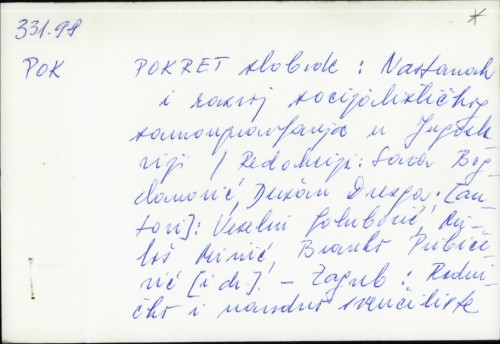 331.98
POK
POKRET slobode : Nastanak
i razvoj socijalističkog
samoupravljanja u Jugosla-
viji / Redakcija: Sava Bog-
danović, Dušan Drezga. [Au-
tori]: Veselin Golubović, Mi-
loš Minić, Branko Pribiće-
vić [i dr.]. - Zagreb : Radni-
čko i narodno sveučilište